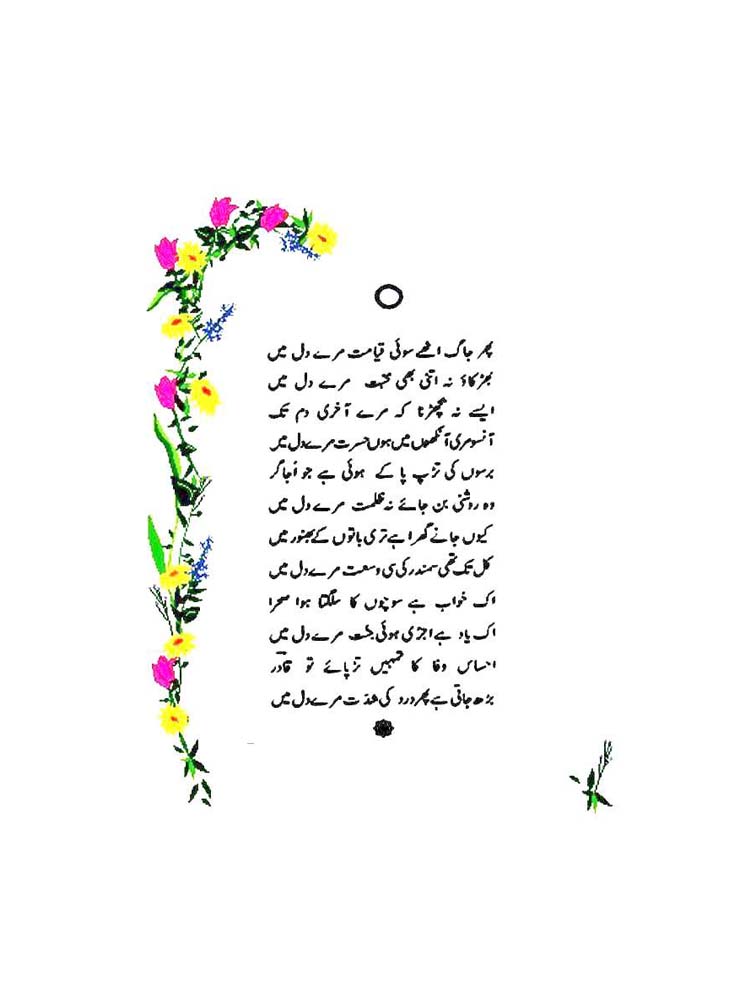 پھر جاگ اٹھے سوئی قیامت مرے دل میں
بھڑکاؤ نہ اتنی بھی محبت مرے دل میں
ایسے نہ بچھڑنا کہ مرے آخری دم تک
آنسو مری آنکھوں میں ہوں حسرت مرے دل میں
برسوں کی تڑپ پا کے ہوئی ہے جو اُجاگر
وہ روشنی بن جائے نہ ظلمت مرے دل میں
کیوں جانے گھرا ہے تری باتوں کے بھنور میں
کل تک تھی سمندر کی سی وسعت مرے دل میں
اک خواب ہے سوچوں کا سلگتا ہوا صحرا
اک یاد ہے اجڑی ہوئی جنت مرے دل میں
احساس وفا کا تمہیں تڑپائے تو قادرؔ
بڑھ جاتی ہے پھر درد کی شدت مرے دل میں